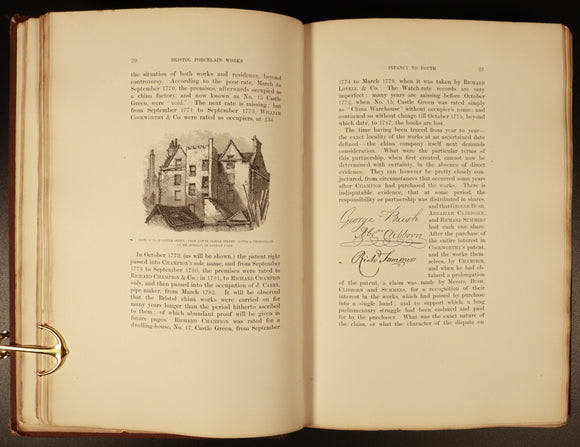 20 BRISTOL PORCELAIN WORKS
the situation of both works and residence, beyond
controversy. According to the poor-rate, March to
September 1770, the premises, afterwards occupied as
a china factory, and now known as No. 15 Castle
Green, were "void." The next rate is missing; but
from September 1771 to September 1773, WILLIAM
COOKWORTHY & Co were rated as occupiers, at £34.
In October 1773, (as will be shown,) the patent right
passed into CHAMPION'S sole name, and from September
1773 to September 1780, the premises were rated to
RICHARD CHAMPION & Co.; in 1781, to RICHARD CHAMPION
only, and then passed into the occupation of J. CAREY,
pipe-maker, from March 1782. It will be observed
that the Bristol china works were carried on for
many years longer than the period hitherto ascribed
to them; of which abundant proof will be given in
future pages. RICHARD CHAMPION was rated for a
dwelling-house, No. 17, Castle Green, from September
INFANCY TO YOUTH 21
1774 to March 1778, when it was taken by RICHARD
LOVELL & Co. The Watch-rate records are very
imperfect; many years are missing before October
1772, when No. 15, Castle Green was rated simply
as "China Warehouse" without occupier's name; and
continued so without change till October 1775, beyond
which date, to 1787, the books are lost.
The time having been traced from year to year—
the exact locality of the works at an associated date
defined—the china company itself next demands
consideration. What were the particular terms of
this partnership, when first created, cannot now be
determined with certainty, in the absence of direct
evidence. They can however be pretty closely con-
jectured, from circumstances that occurred some years
after CHAMPION had purchased the works. There is
indisputable evidence, that at some period, the
responsibility or partnership was distributed in shares,
and that GEORGE BUSH,
ABRAHAM CLIBBORN,
and RICHARD SUMMERS
had each one share.
After the purchase of
the entire interest in
COOKWORTHY'S patent,
and the works them-
selves, by CHAMPION,
and when he had ob-
tained a prolongation
George Bush
Abm Clibborn
Richd Summers
of the patent, a claim was made by Messrs. BUSH,
CLIBBORN, and SUMMERS, for a recognition of their
interest in the works, which had passed by purchase
into a single hand; and to support which, a long
parliamentary struggle had been endured and paid
for by the purchaser. What was the exact nature of
the claim, or what the character of the dispute on